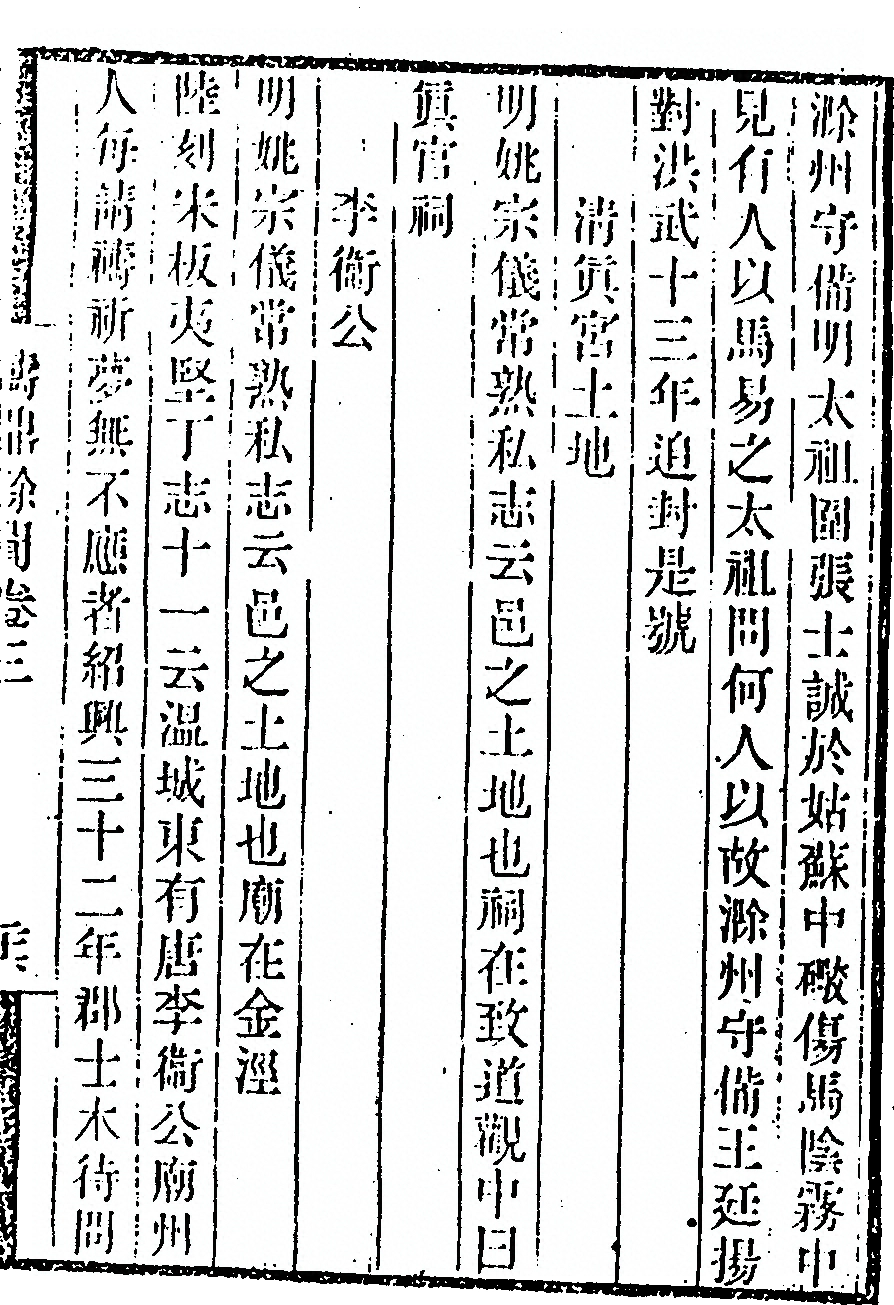 滁州守備明太祖圍張士誠於姑蘇中礮傷馬陰霧中
見有人以馬易之太祖問何人以故滁州守備王廷揚
對洪武十三年追封是號
清眞宮土地
明姚宗儀常熟私志云邑之土地也祠在致道觀中曰
眞官祠
李衞公
明姚宗儀常熟私志云邑之土地也廟在金涇
陸刻宋板夷堅丁志十一云溫城東有唐李衞公廟州
人每請禱祈夢無不應者紹興三十二年郡士木待問
餘聞卷三